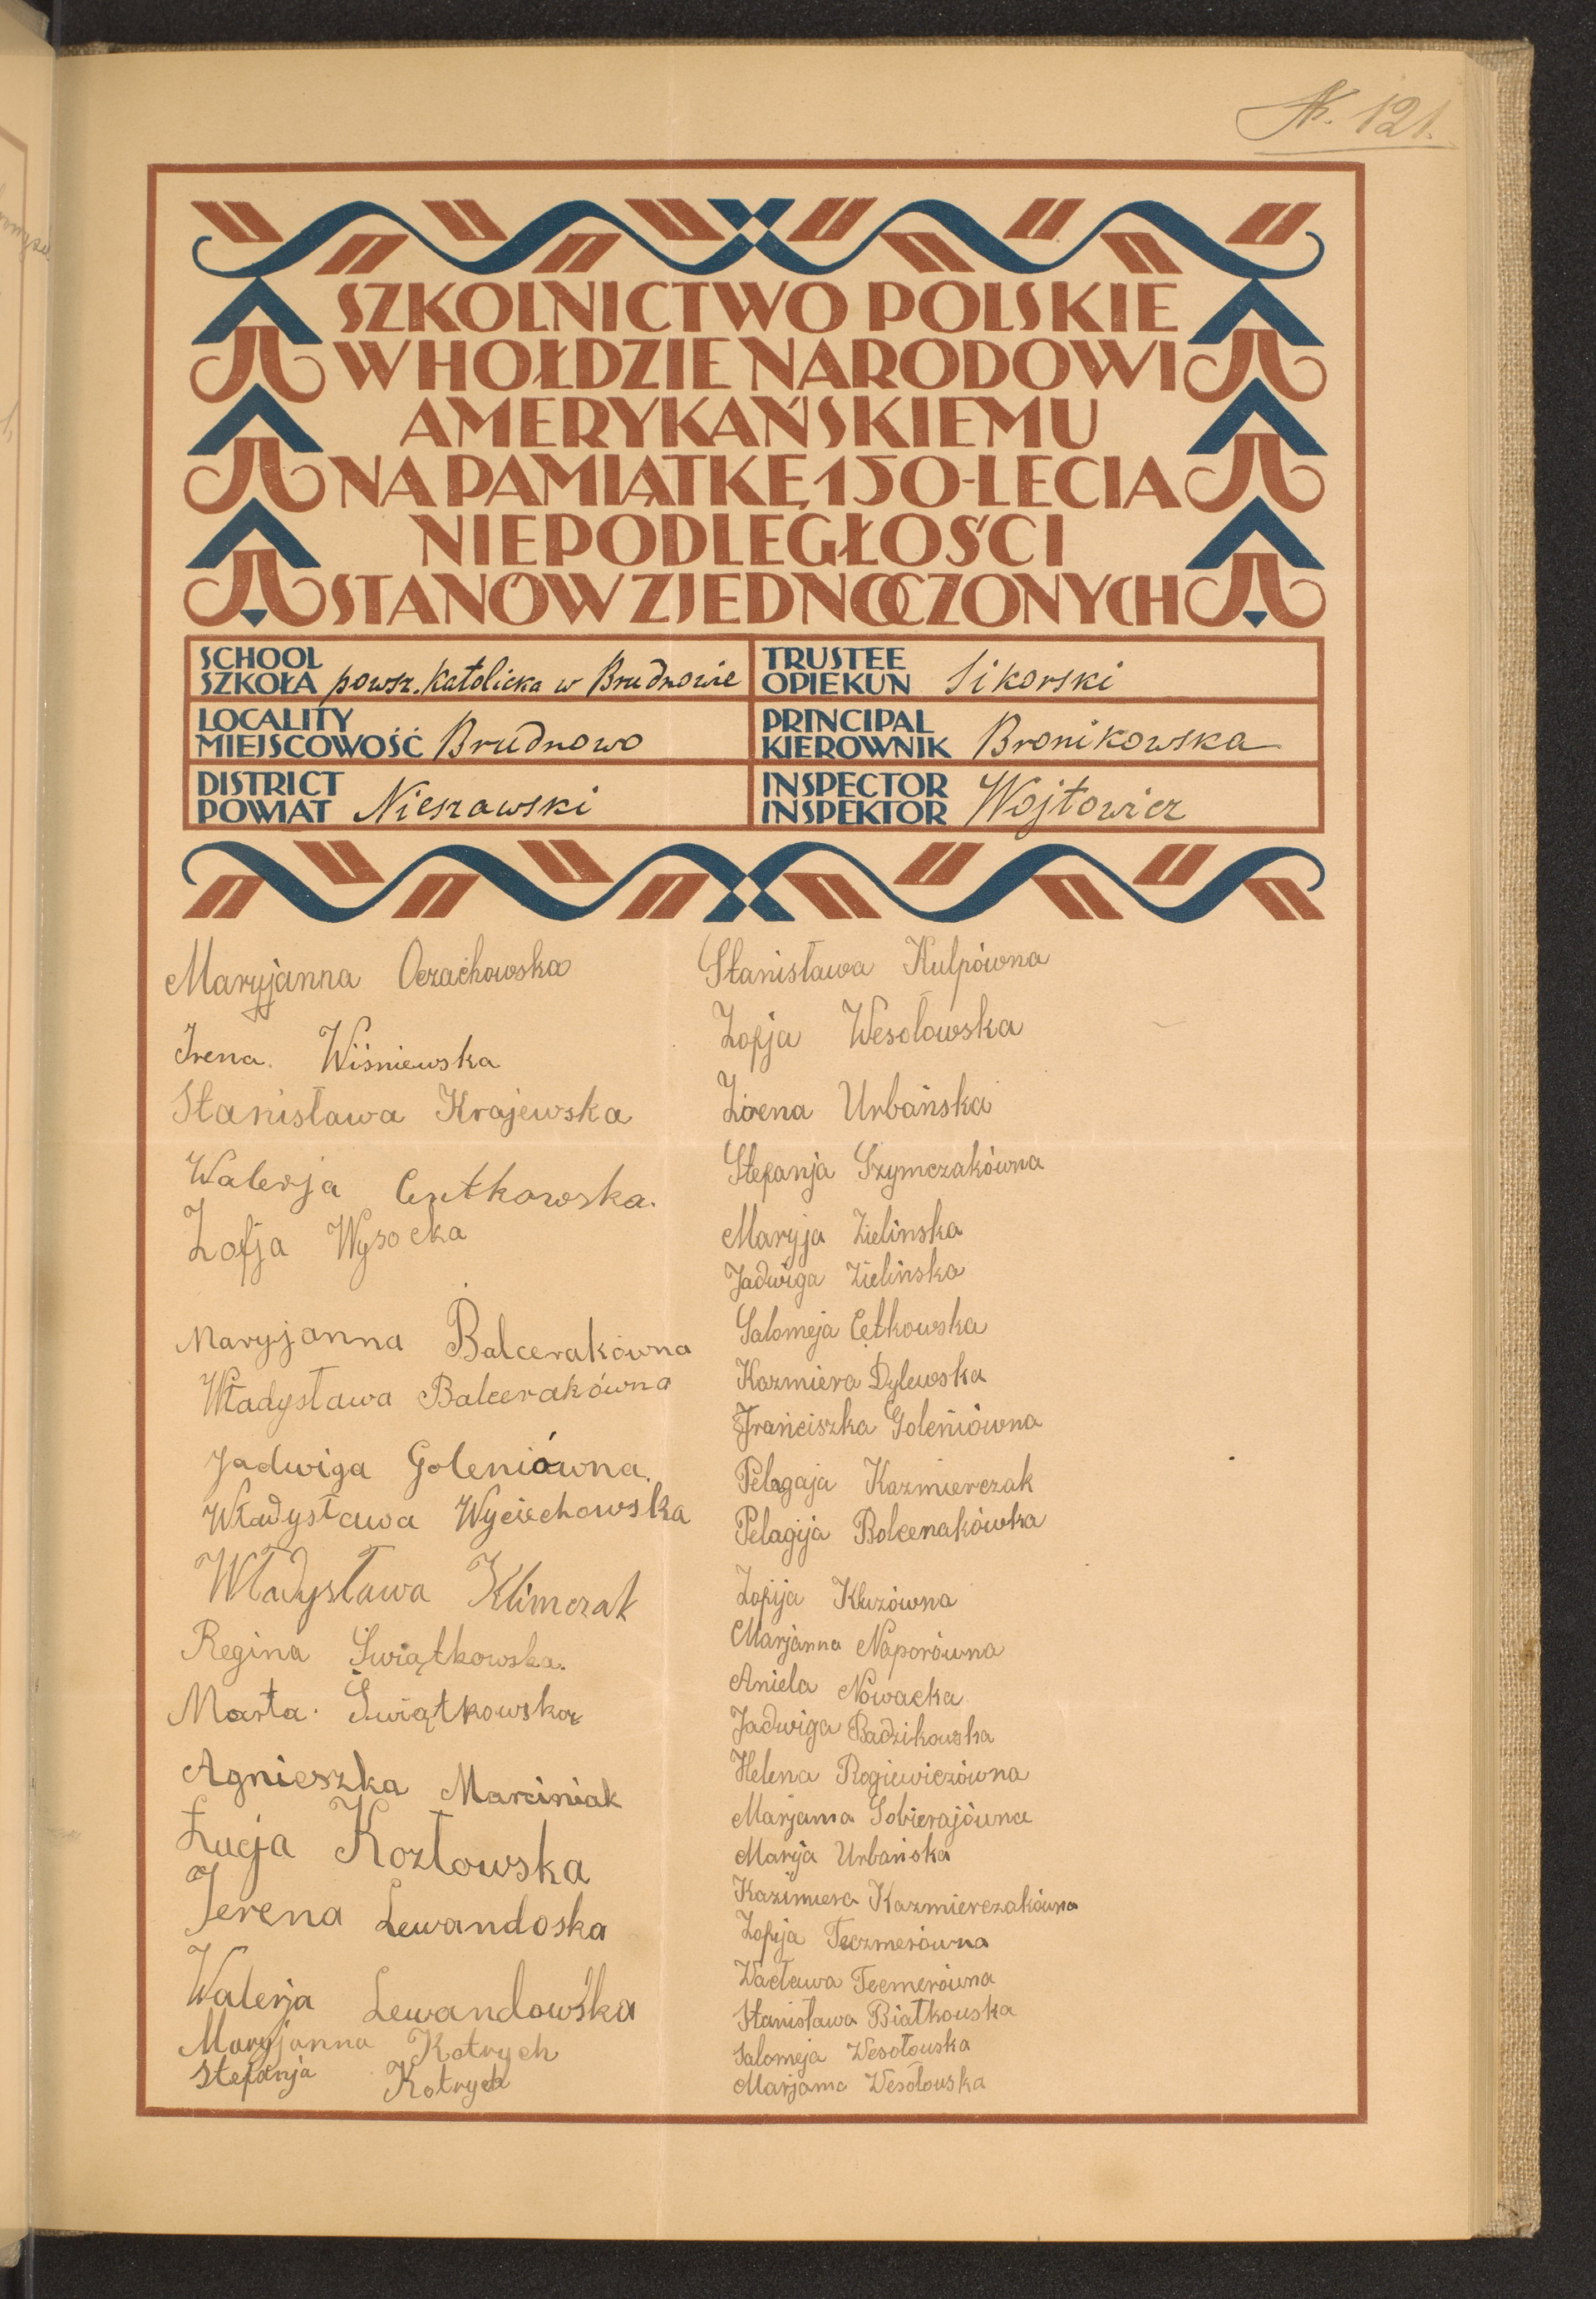 N. 121.
SZKOLNICTWO POLSKIE
W HOŁDZIE NARODOWI
AMERYKAŃSKIEMU
NA PAMIĄTKĘ 150-LECIA
NIEPODLEGŁOŚCI
STANÓW ZJEDNOCZONYCH
SCHOOL
SZKOŁA powsz. Katolicka w Brudnowie
TRUSTEE
OPIEKUN Sikorski
LOCALITY
MIEJSCOWOŚĆ Brudnowo
PRINCIPAL
KIEROWNIK Bronikowska
DISTRICT
POWIAT Nieszawski
INSPECTOR
INSPEKTOR Wojtowicz
Maryjanna Oczachowska
Irena. Wiśniewska
Stanisława Krajewska
Walerja Centkowska.
Zofja Wysocka
Maryjanna Balcerakówna
Władysława Balcerakówna
Jadwiga Goleniówna.
Władysława Wyciechowska
Władysława Klimczak
Regina Świątkowska.
Marta. Świątkowska
Agnieszka Marciniak
Łucja Kozłowska
Jerena Lewandoska
Walerja Lewandowska
Maryjanna Kotrych
Stefanja Kotrych
Stanisława Kulpówna
Zofja Wesołowska
Urbańska
Stefanja Szymczakówna
Maryja Zielinska
Jadwiga Zielińska
Salomeja Cętkowska
Kazmiera Dylewska
Franciszka Goleniówna
Pelagaja Kazmierczak
Pelagija Bolcenakówka
Zofija Kluzówna
Marjanna Naporówna
Aniela Nowacka
Jadwiga Badzikowska
Helena Rogiewiczówna
Marjanna Sobierajówna
Marija Urbańska
Kazimiera Kazmierczakówna
Zofija Teczmerówna
Wacława Tecmerówna
Stanisława Białkowska
Salomeja Wesołowska
Marjanna Wesołowska